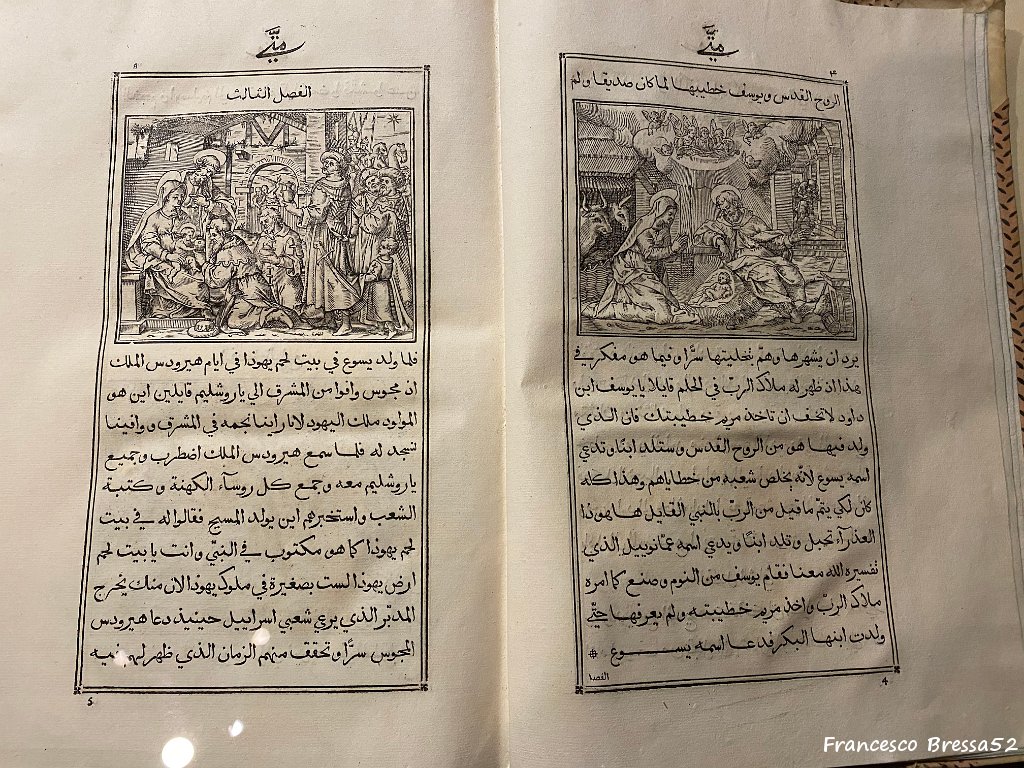 متّي
٤
الروح القدس ويوسف خطيبها لما كان صديقا ولم
يرد ان يشهرها وهمّ بتخليتها سرًّا وفيما هو مفكر في
هذا اذ ظهر له ملاك الربّ في الحلم قايلا يا يوسف ابن
داود لا تخف ان تاخذ مريم خطيبتك فان الذي
ولد فيها هو من الروح القدس وستلد ابنًا وتدعي
اسمه يسوع لانّه يخلص شعبه من خطاياهم وهذا كله
كان لكي يتمّ ما قيل من الربّ بالنبي القايل هاهوذا
العذرآء تحبل وتلد ابنًا ويدعي اسمه عمّانوييل الذي
تفسيره الله معنا فقام يوسف من النوم وصنع كما امره
ملاك الربّ واخذ مريم خطيبته ولم يعرفها حتّي
ولدت ابنها البكر فدعا اسمه يســـوع
الفصل
4
متّي
الفصل الثالث
فلما ولد يسوع في بيت لحم يهوذا في ايام هيرودس الملك
اذ مجوس وافوا من المشرق الي ياروشليم قايلين اين هو
المولود ملك اليهود لانا راينا نجمه في المشرق ووافينا
لنسجد له فلما سمع هيرودس الملك اضطرب وجميع
ياروشليم معه وجمع كل روسآء الكهنة وكتبة
الشعب واستخبرهم اين يولد المسيح فقالوا له في بيت
لحم يهوذا كما هو مكتوب في النبيّ وانت يا بيت لحم
ارض يهوذا لست بصغيرة في ملوك يهوذا لان منك يخرج
المدبّر الذي يرعي شعبي اسراييل حينيذ دعا هيرودس
المجوس سرًّا وتحقق منهم الزمان الذي ظهر لهم فيه
5
Francesco Bressa52